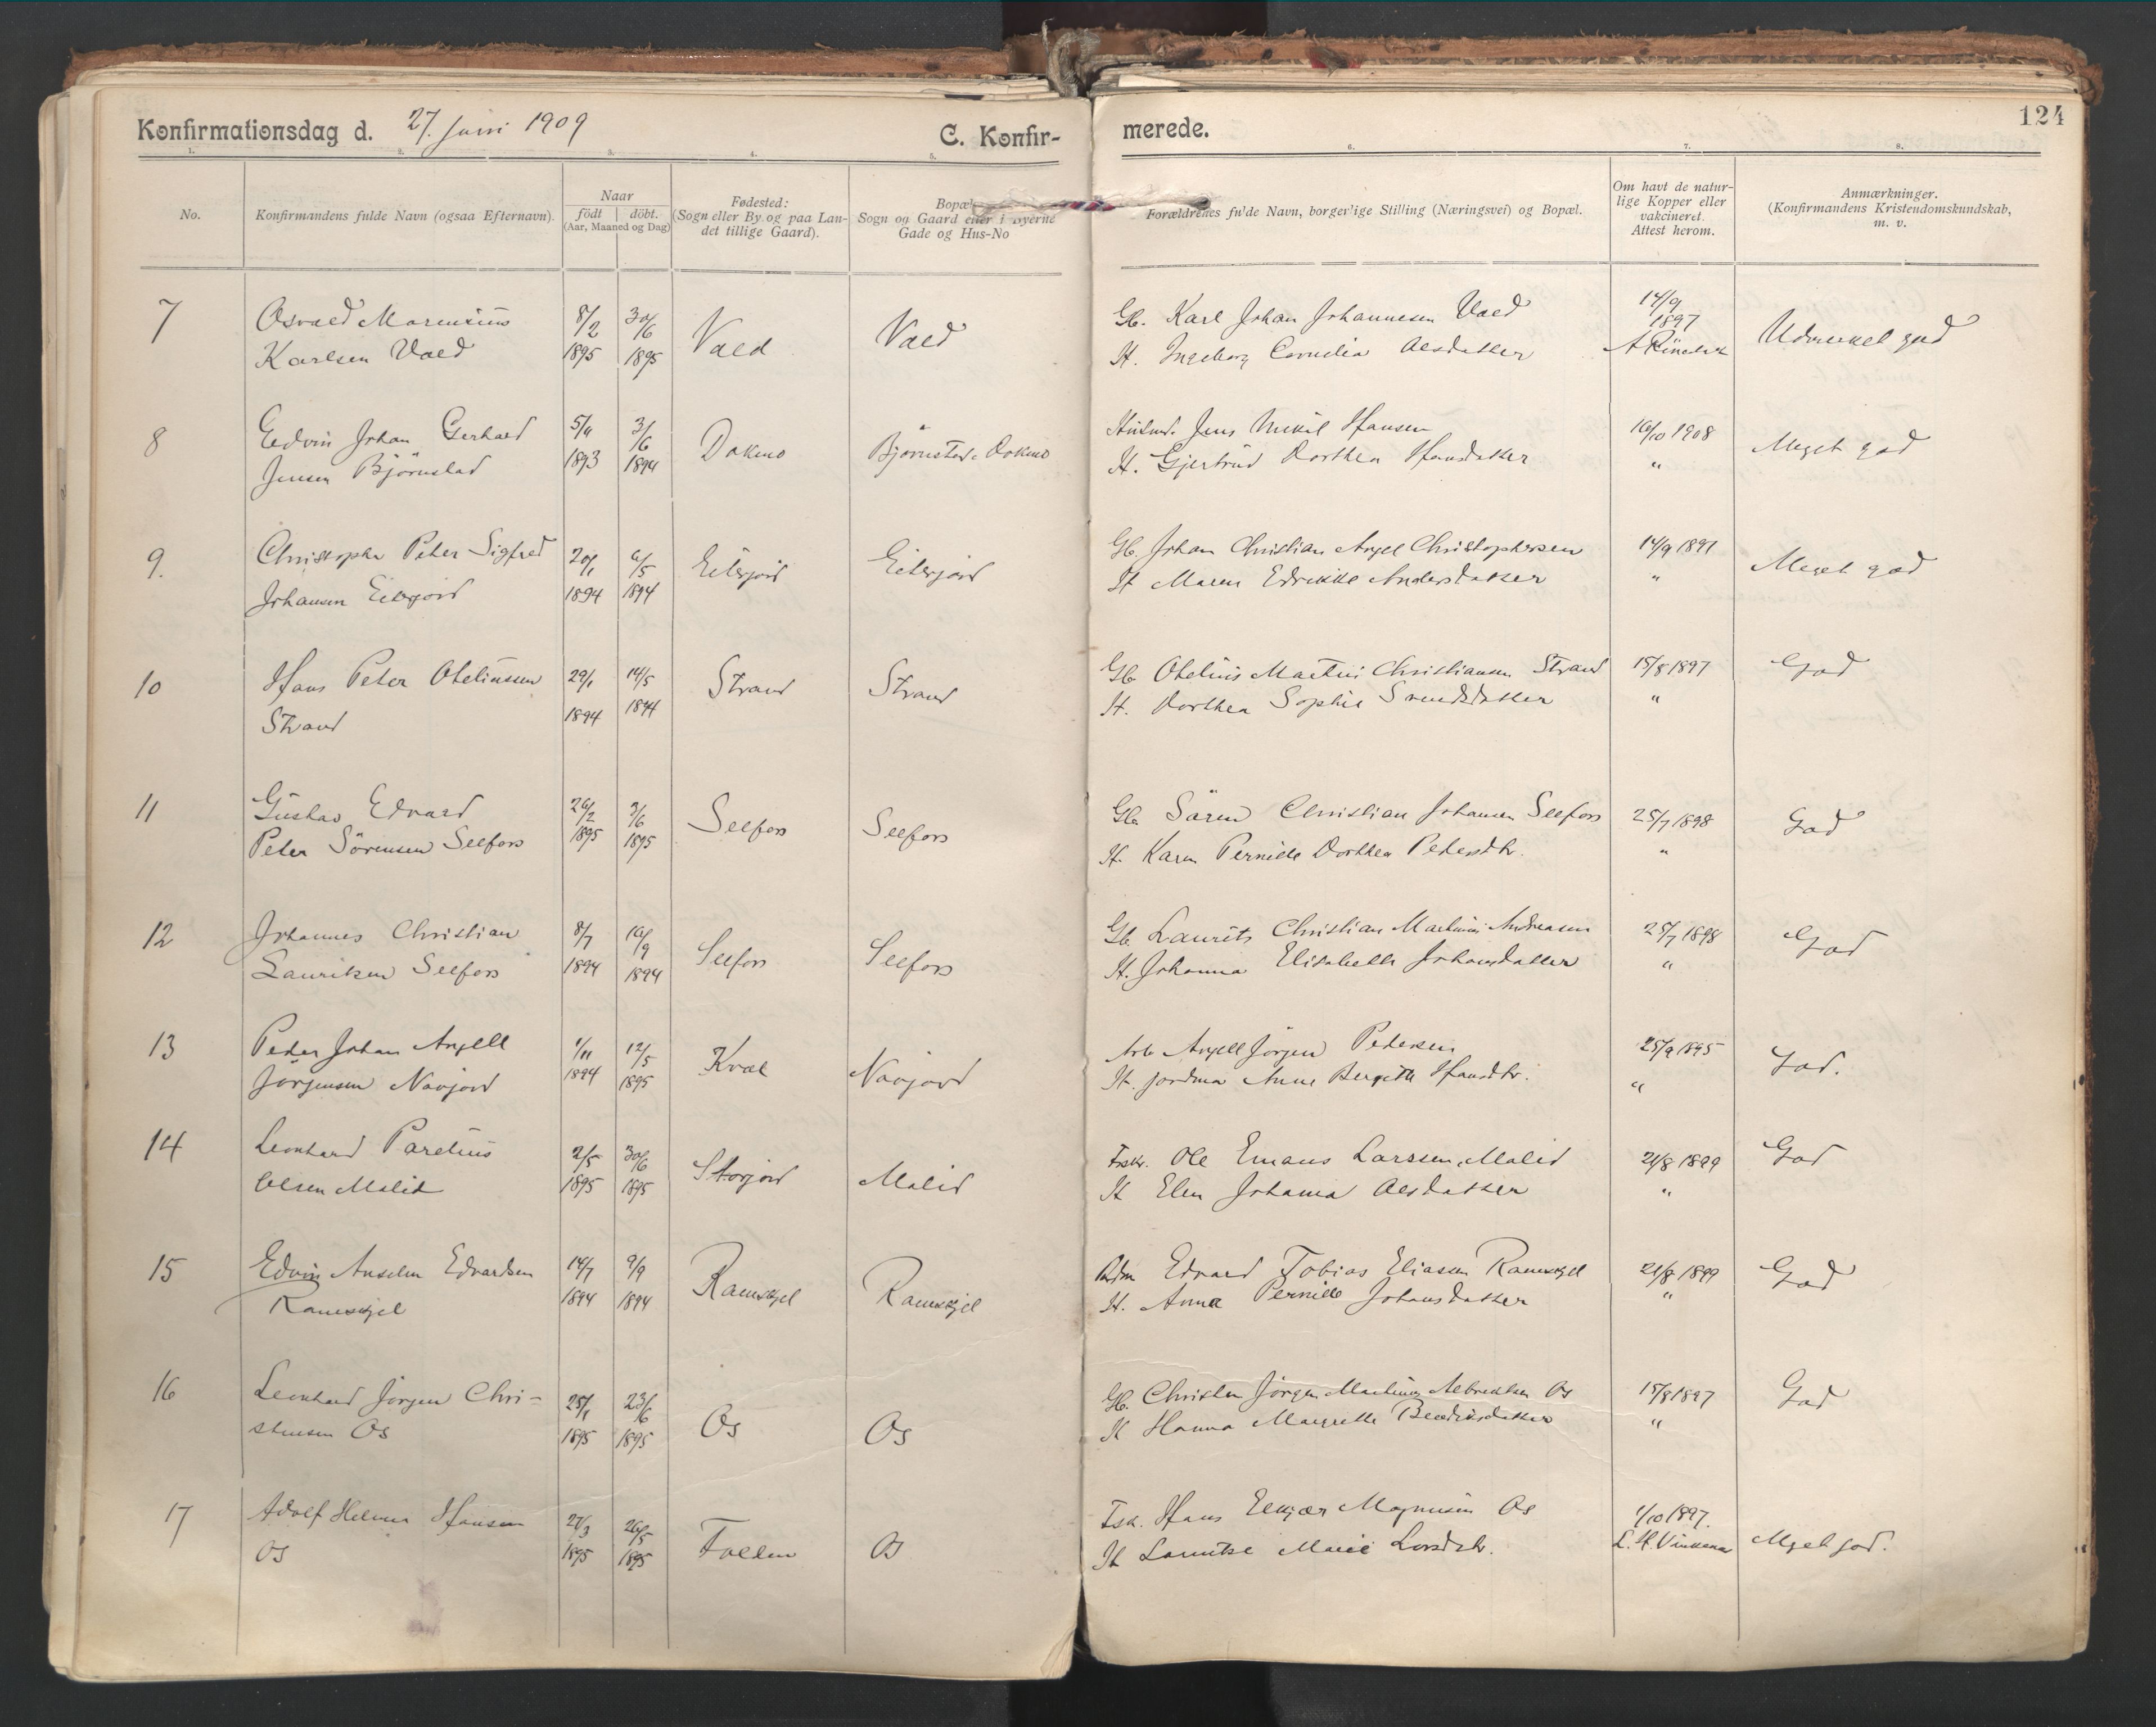 Konfirmationsdag d. 27. juni 1909
C. Konfir-
merede.
124
1. 2. 3. 4. 5. 6. 7. 8.
No.
Konfirmandens fulde Navn (ogsaa Efternavn).
Naar
födt döbt.
(Aar, Maaned og Dag)
Fødested:
(Sogn eller By og paa Lan-
det tillige Gaard).
Bopæl
Sogn og Gaard eller i Byerne
Gade og Hus-No
Forældrenes fulde Navn, borgerlige Stilling (Næringsvei) og Bopæl.
Om havt de natur-
lige Kopper eller
vakcineret.
Attest herom.
Anmærkninger.
(Konfirmandens Kristendomskundskab,
m. v.
7 Osvald 8/2 30/6 Gb. Karl Johan Johannesen Vald 14/9
1897
Karlsen Vald 1895 1895 Vald Vald H. Ingeborg Cornelia Olsdatter Udmerket god
8 Edvin Johan Gerhard 5/11 3/6 Husmd. Jens Mikal Hansen 16/10 1908
Jensen Björnstad 1893 1894 Dokmo Björnstad, Dokmo H. Gjertrud Dorthea Hansdatter " Meget god
9. Christopher Peter Sigfred 20/1 6/5 Gb. Johan Christian Angel Christophersen 14/9 1897
Johansen Eiterjord 1894 1894 Eiterjord Eiterjord H Maren Edrikke Andersdatter " Meget god
10 Hans Peter Oteliussen 29/1 14/5 Gb Otelius Martin Christiansen Strand 15/8 1897 God
Strand 1894 1894 Strand Strand H. Dorthea Sophie Svendsdatter "
11 Gustav Edvard 26/2 3/6 Gb Sören Christian Johansen Selfors 25/7 1898
Peter Sörensen Selfors 1895 1895 Selfors Selfors H. Karen Pernille Dorthea Pedersdtr. " God
12 Johannes Christian 8/7 16/9 Gb Laurits Christian Andreasen 25/7 1898
Lauritsen Selfors 1894 1894 Selfors Selfors H. Johanna Elisabeth Johansdatter " God
13 Peder Johan Angell 1/11 12/5 Arb Angell Jörgen Pedersen 25/9 1895
Jörgensen Navjord 1894 1895 Kval Navjord H. Jordma Anne Bergitte Hansdtr. " God.
14 Leonhard Parelius 2/5 30/6 Fskr. Ole Emaus Larssen, Malid 21/8 1899 God
Olsen Malid 1895 1895 Storjord Malid H Elen Johanna Olsdatter "
15 Edvin Anselm Edvardsen 14/7 9/9 Edvard Tobias Eliasen Ramskjel 21/8 1899 God
Ramskjel 1894 1894 Ramskjel Ramskjel H. Anna Pernille Johansdatter "
16 Leonhard Jörgen Chri- 25/1 23/6 Gb. Christen Jörgen Martinus Albrektsen Os 15/8 1897 God
stensen Os 1895 1895 Os Os H Hanna Margrethe "
17 Adolf Helmer Hansen 27/3 26/5 Fsk. Hans Magnusen Os 1/10 1897.
Os 1895 1895 Os H Marie Meget god.